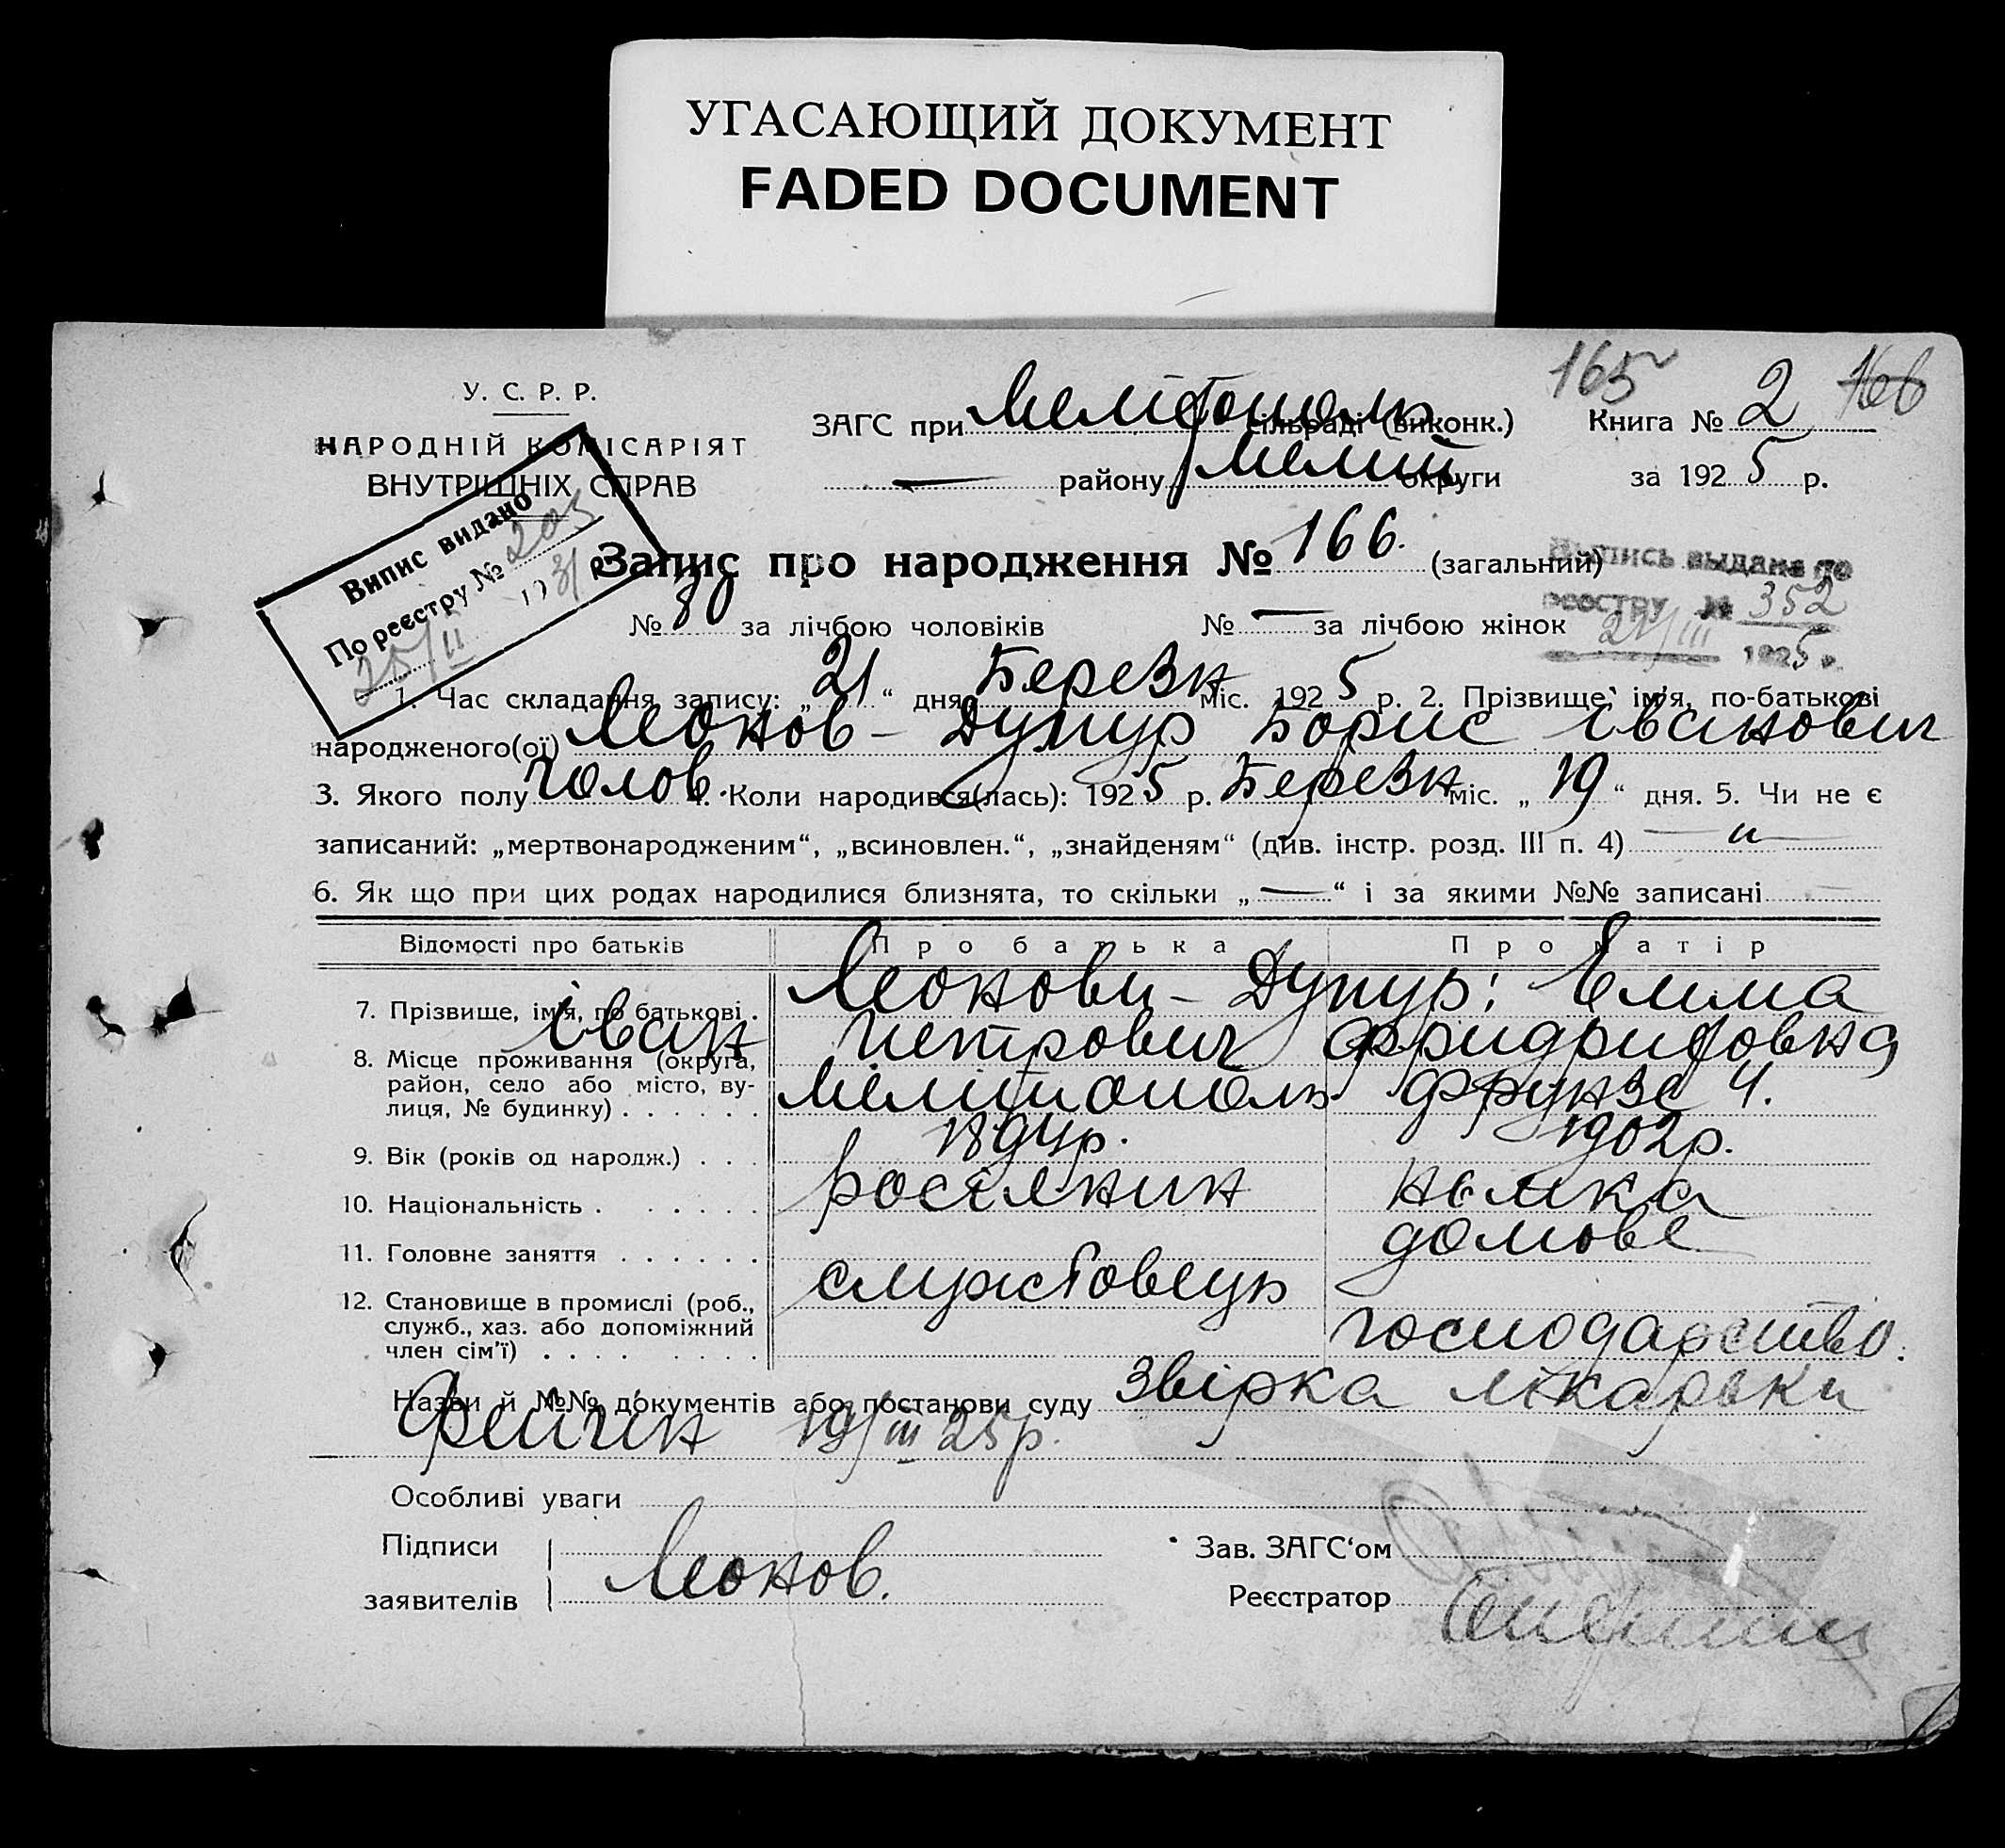 УГАСАЮЩИЙ ДОКУМЕНТ
FADED DOCUMENT
165
У. С. Р. Р.
НАРОДНІЙ КОМІСАРІЯТ
ВНУТРІШНІХ СПРАВ
ЗАГС при Мелітополь сільраді (виконк.)
Книга № 2 166
— району Меліт округи
за 1925 р.
Випис видано
По реєстру № 203
25/II 1931 р.
Запис про народження № 166. (загальний)
Выпись выдана по
реестру № 352
21/III 1925 г.
№ 80 за лічбою чоловіків № — за лічбою жінок
1. Час складання запису: „21“ дня Березня міс. 1925 р. 2. Прізвище, ім'я, по-батькові
народженого(ої) Леонов - Дупур Борис Іванович
3. Якого полу чолов. 4. Коли народився(лась): 1925 р. Березня міс. „19“ дня. 5. Чи не є
записаний: „мертвонародженим“, „всиновлен.“, „знайденям“ (див. інстр. розд. III п. 4) — „ —
6. Як що при цих родах народилися близнята, то скільки „—“ і за якими №№ записані
Відомості про батьків Про батька Про матір
7. Прізвище, ім'я, по батькові . Леонови - Дупур: Емма
Іван Петрович Фридрифовна
8. Місце проживання (округа,
район, село або місто, ву-
лиця, № будинку) . . . . . . Мелітополь Фрунзе 4.
9. Вік (років од народж.) . . . 1894р. 1902р.
10. Національність . . . . . . росіянин німка
11. Головне заняття . . . . . . службовець домове
12. Становище в промислі (роб.,
служб., хаз. або допоміжний
член сім'ї) . . . . . . . . господарство.
Назви й №№ документів або постанови суду Звірка лікарьки
Фейгін 19/III 25р.
Особливі уваги
Підписи
заявителів Леонов.
Зав. ЗАГС‘ом
Реєстратор